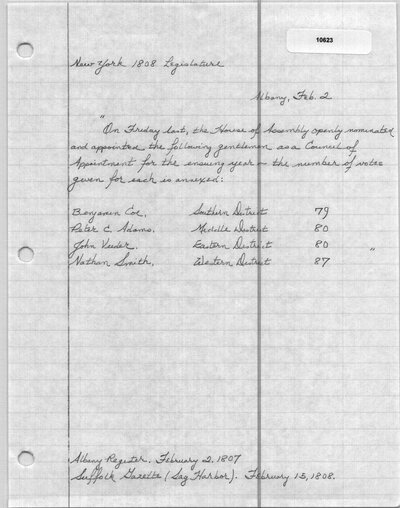 10623
New York 1808 Legislature
Albany, Feb. 2
"On Friday last, the House of Assembly openly nominated
and appointed the following gentlemen as a Council of
Appointment for the ensuing year – the number of votes
given for each is annexed:
Benjamin Coe, Southern District 79
Peter C. Adams, Middle District 80
John Veeder, Eastern District 80 "
Nathan Smith, Western District 87
Albany Register. February 2, 1807
Suffolk Gazette (Sag Harbor). February 15, 1808.